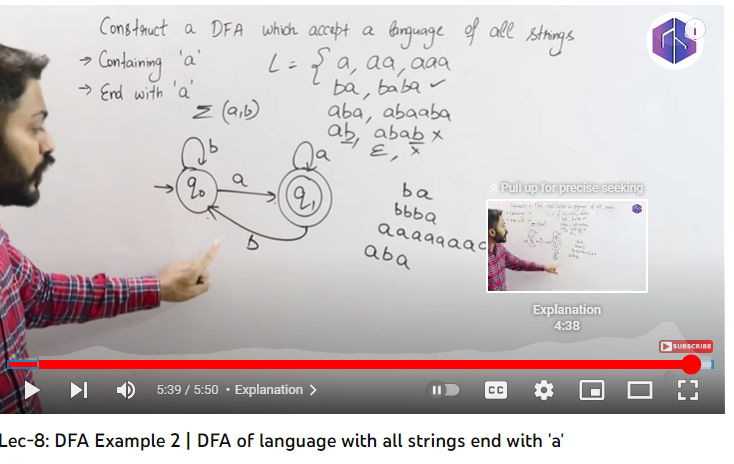 Construct a DFA which accept a language of all strings
→ Containing 'a'
→ End with 'a'
Σ (a,b)
L = { a, aa, aaa
ba, baba ✓
aba, abaaba
ab, abab x
ε, x
b
a
q₀
a
q₁
b
ba
bbba
aaaaaaaa
aba
i
Pull up for precise seeking
Explanation
4:38
SUBSCRIBE
5:39 / 5:50 • Explanation >
CC
Lec-8: DFA Example 2 | DFA of language with all strings end with 'a'